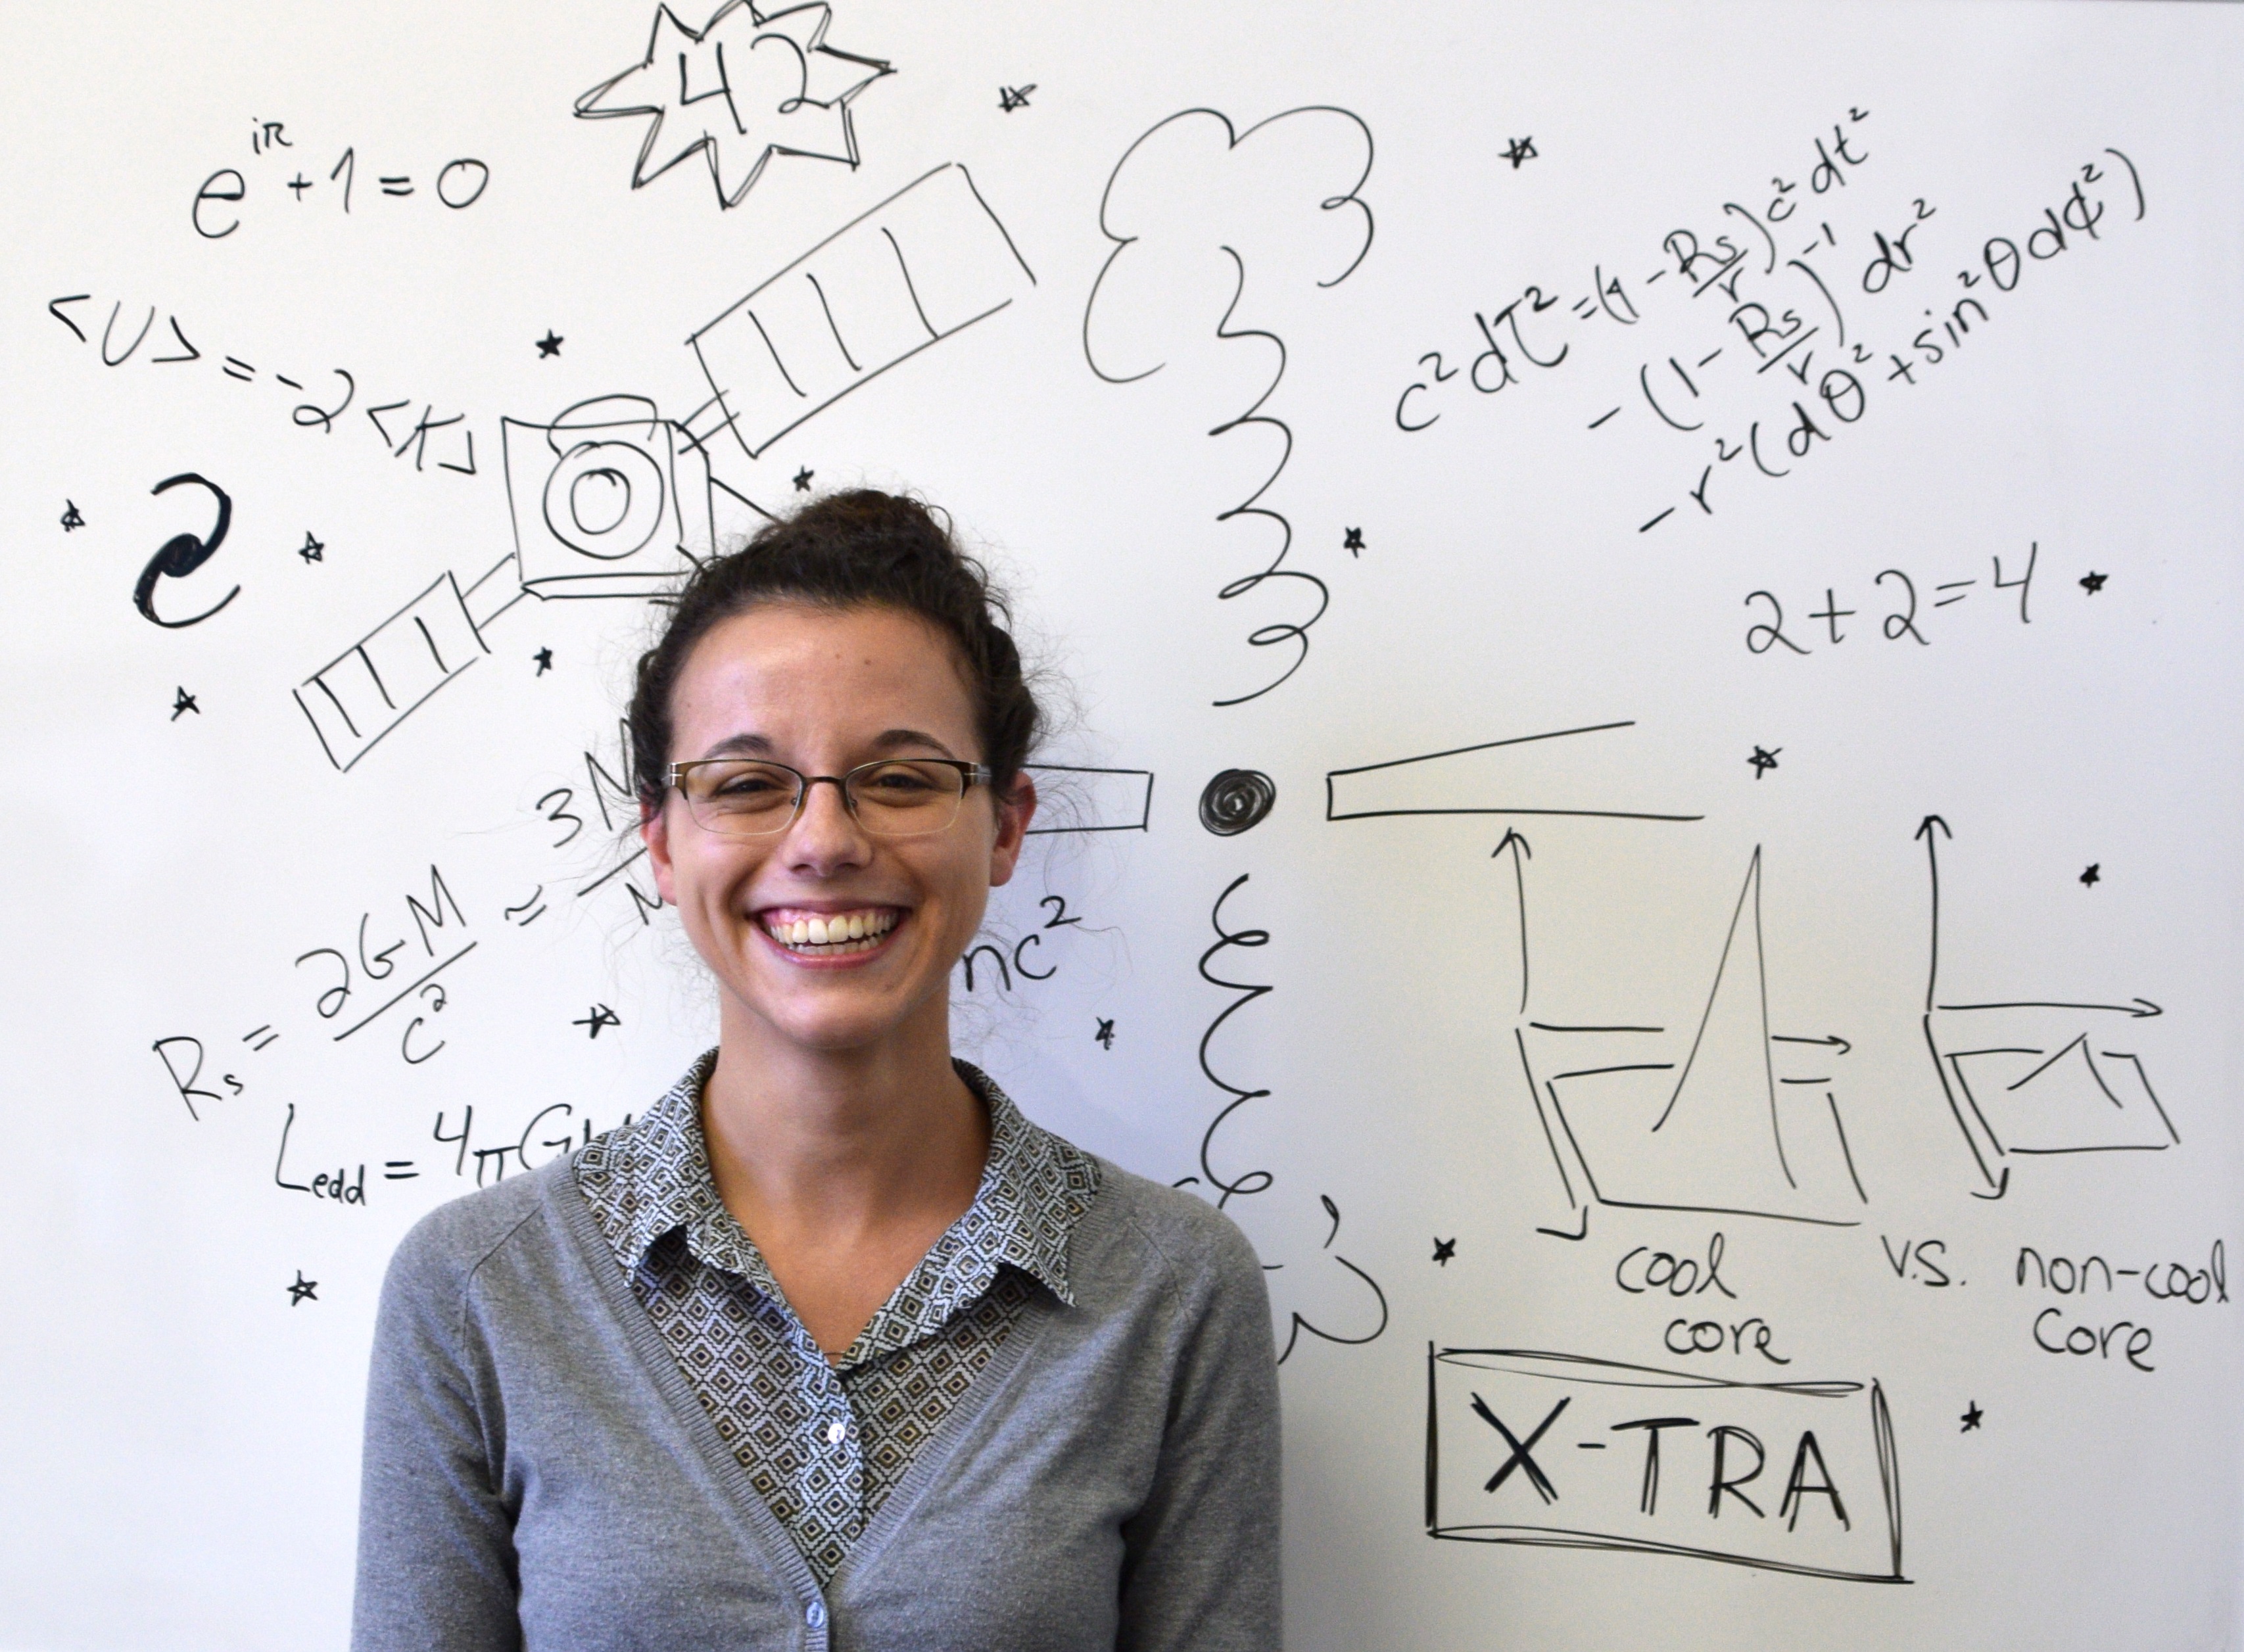 42
e^{iπ} + 1 = 0
<U> = -2 <K>
c² dτ² = (1 - Rs/r) c² dt²
- (1 - Rs/r)⁻¹ dr²
- r² (dθ² + sin²θ dϕ²)
2 + 2 = 4
Rs = 2GM/c² ≈ 3M/M
mc²
Ledd = 4πG
cool core v.s. non-cool core
X-TRA